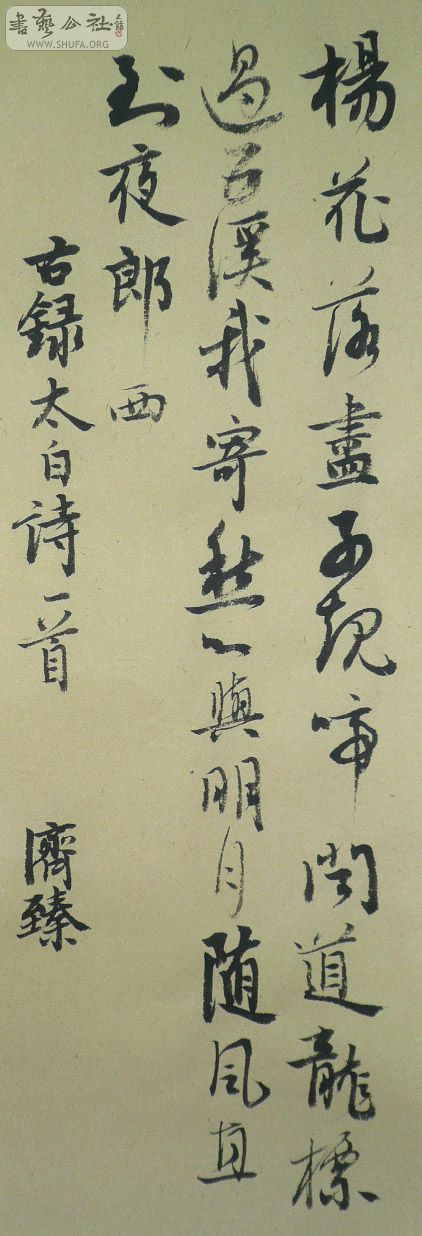 書藝公社
WWW.SHUFA.ORG
楊花落盡子規啼聞道龍標
過五溪我寄愁心與明月随風直
到夜郎西
右録太白詩一首 濟臻